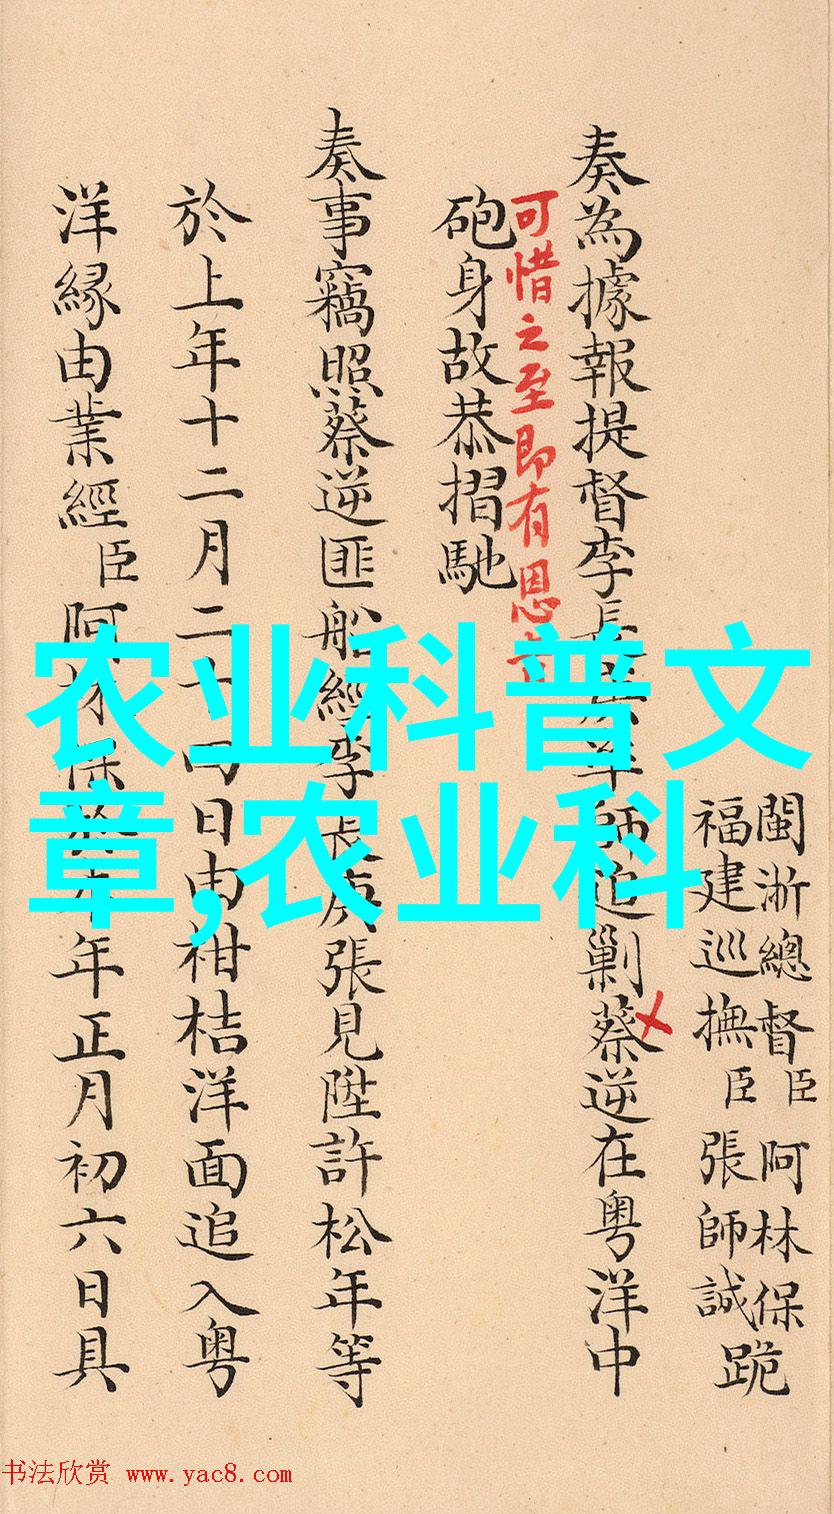 閩浙總督臣阿林保
福建巡撫臣張師誠
跪
奏為據報提督李長庚率師追剿蔡逆在粵洋中
可惜之至即有恩旨
砲身故恭摺馳
奏事竊照蔡逆匪船經李長庚張見陞許松年等
於上年十二月二十四日由柑桔洋面追入粵
洋緣由業經臣阿林保於本年正月初六日具
农业科普文
章,农业科
书法欣赏 www.yac8.com